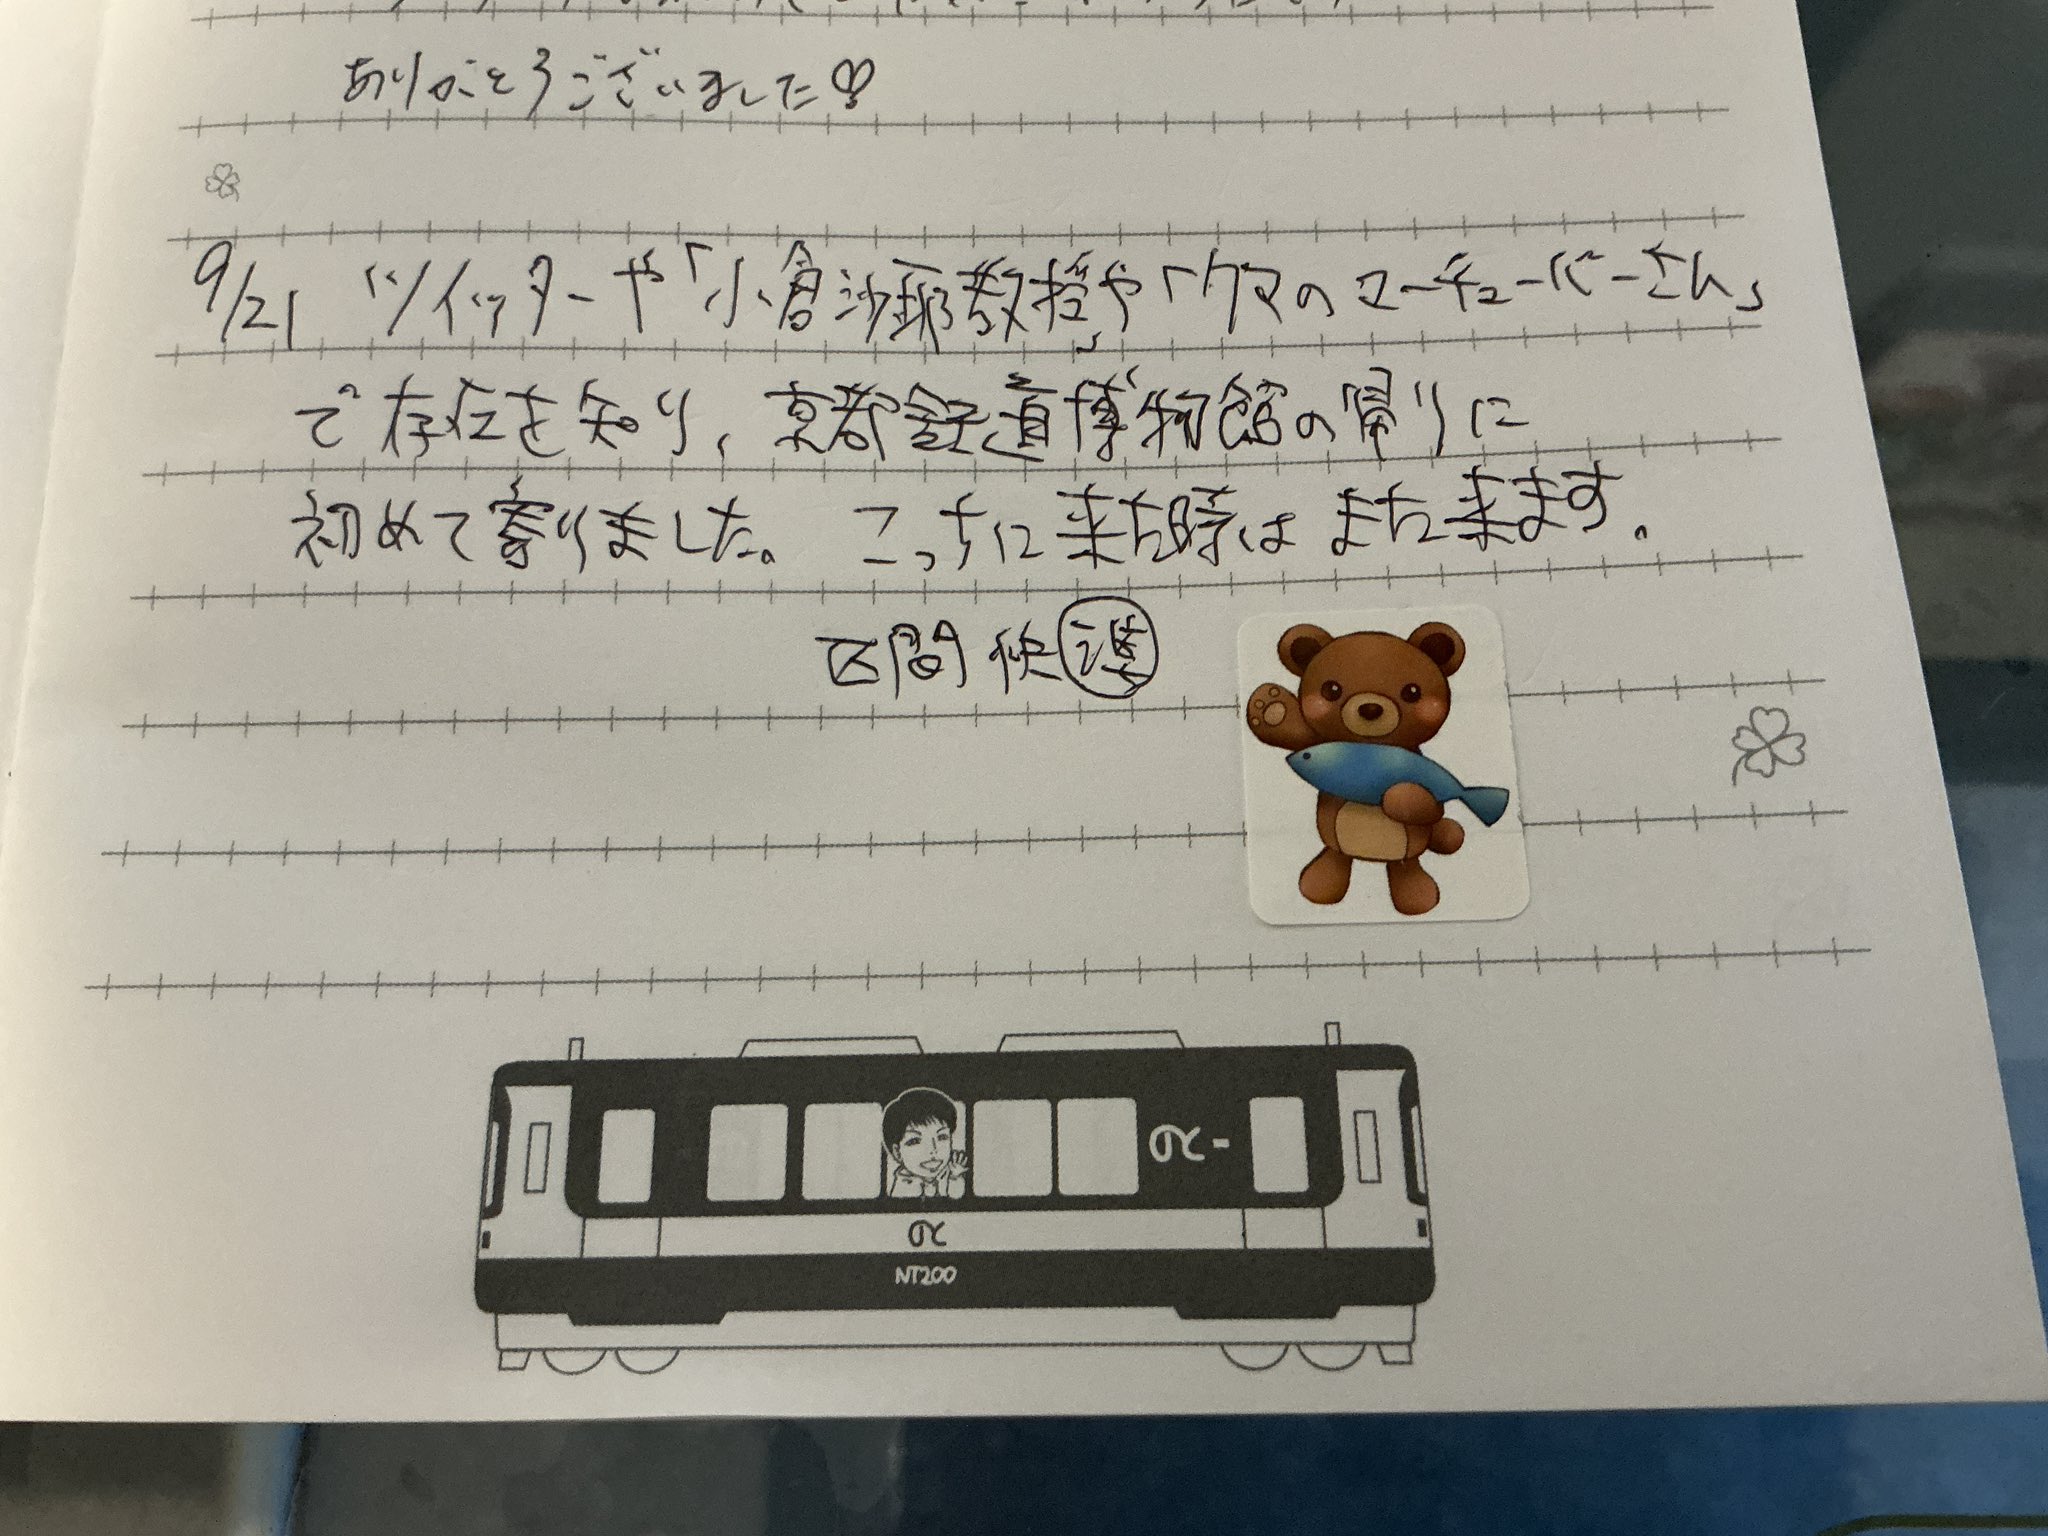 ありがとうございました♡
9/21 ツイッターや「小倉沙耶教授」や「クマのマーチューバーさん」
で存在を知り、京都鉄道博物館の帰りに
初めて寄りました。こっちに来た時はまた来ます。
区間快準
NT200